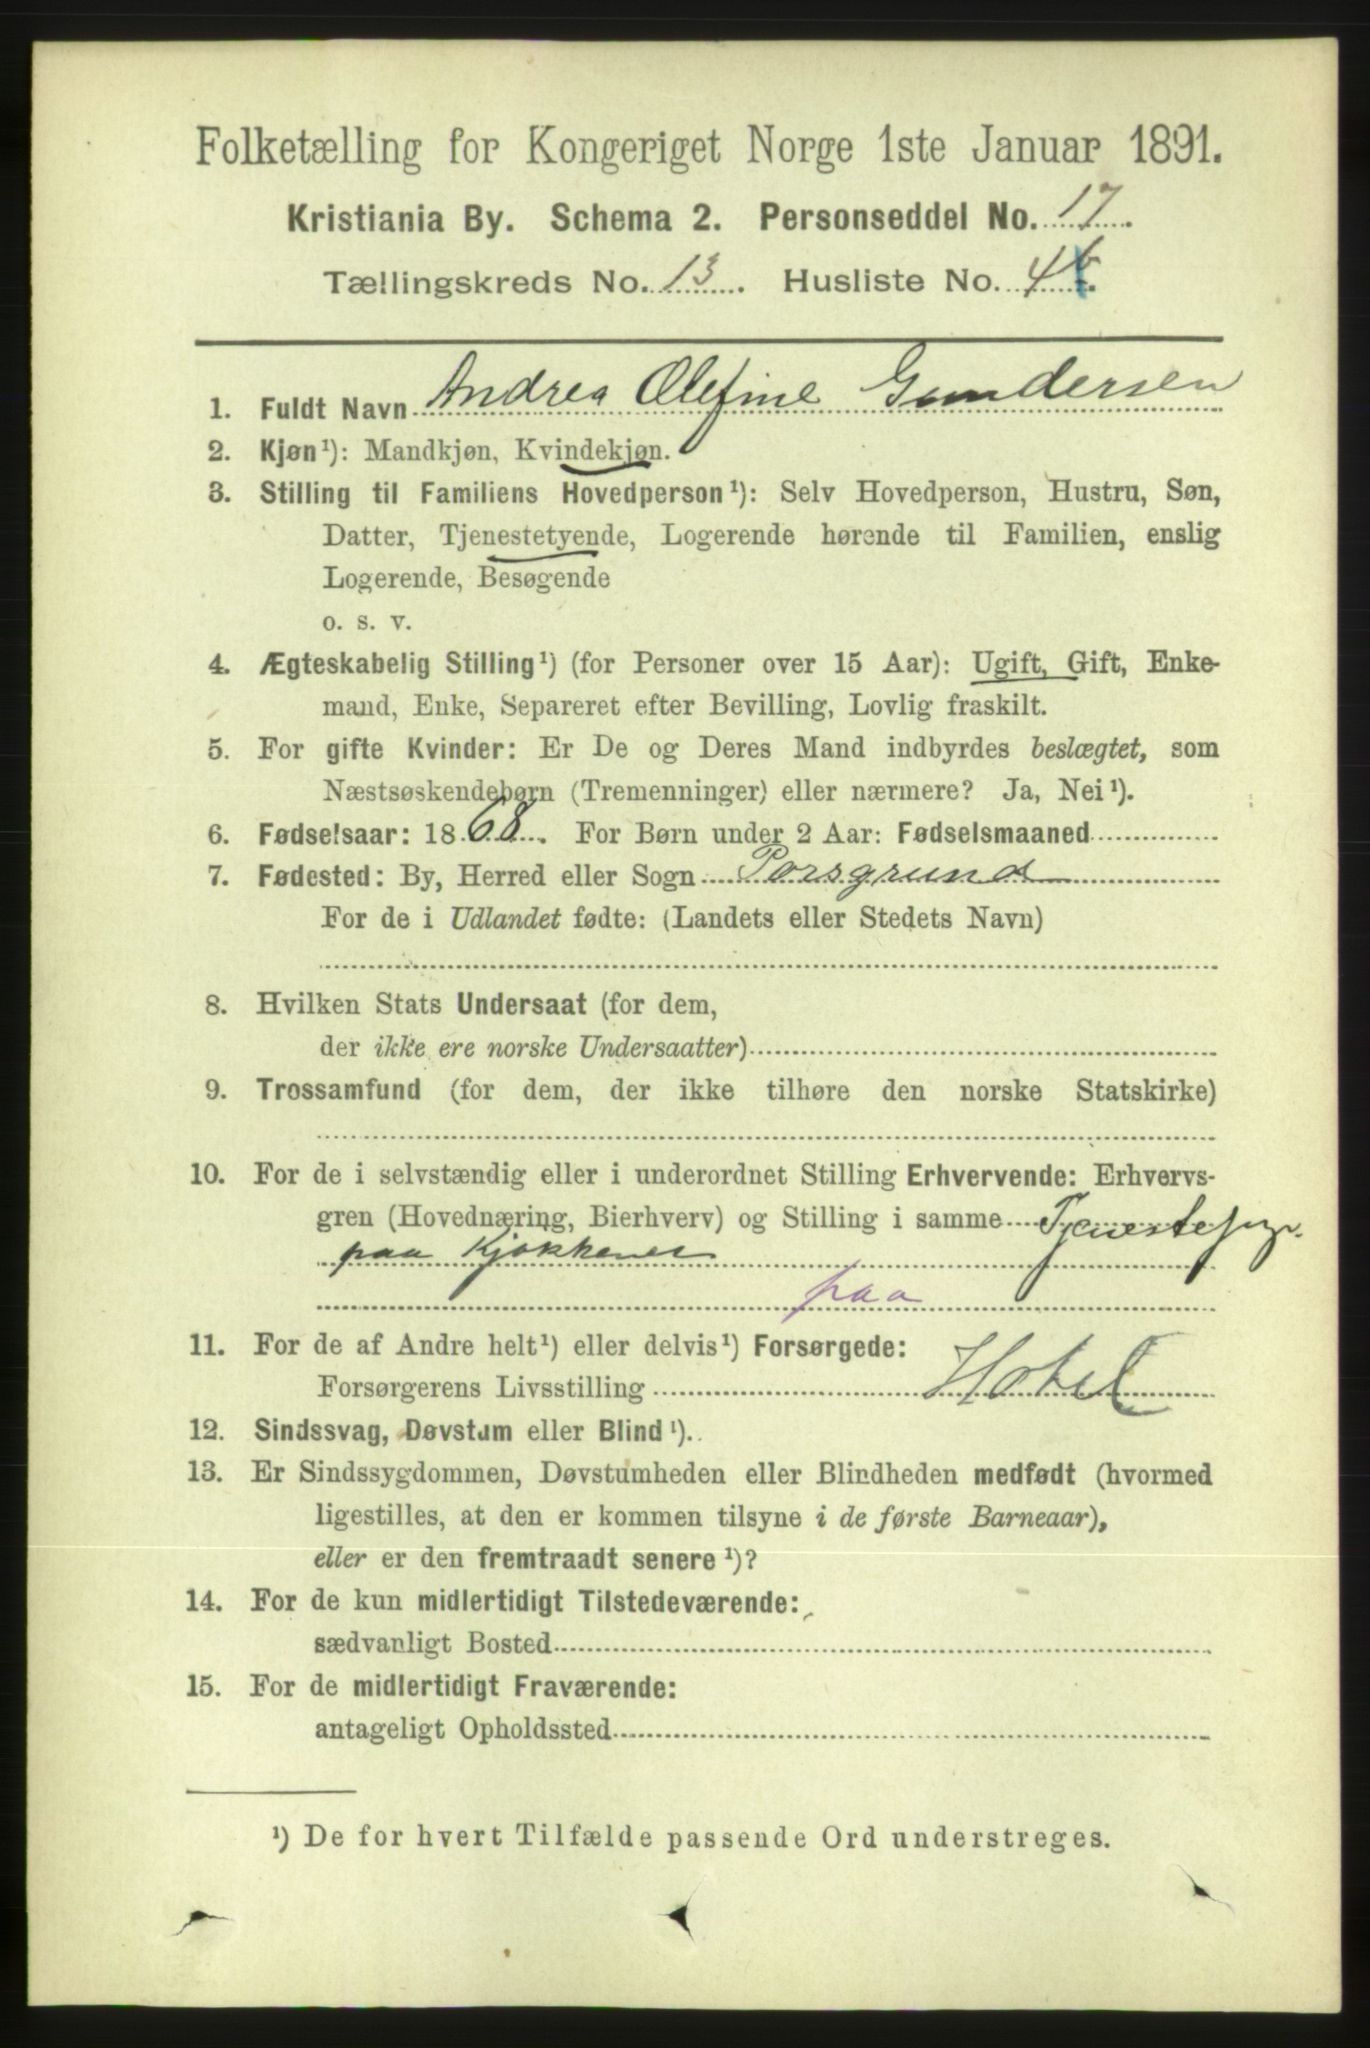 Folketælling for Kongeriget Norge 1ste Januar 1891.
Kristiania By. Schema 2. Personseddel No. 17.
Tællingskreds No. 13. Husliste No. 4b.
1. Fuldt Navn Andrea Olefine Gundersen
2. Kjøn¹): Mandkjøn, Kvindekjøn.
3. Stilling til Familiens Hovedperson¹): Selv Hovedperson, Hustru, Søn,
Datter, Tjenestetyende, Logerende hørende til Familien, enslig
Logerende, Besøgende
o. s. v.
4. Ægteskabelig Stilling¹) (for Personer over 15 Aar): Ugift, Gift, Enke-
mand, Enke, Separeret efter Bevilling, Lovlig fraskilt.
5. For gifte Kvinder: Er De og Deres Mand indbyrdes beslægtet, som
Næstsøskendebørn (Tremenninger) eller nærmere? Ja, Nei¹).
6. Fødselsaar: 1868. For Børn under 2 Aar: Fødselsmaaned
7. Fødested: By, Herred eller Sogn Porsgrund
For de i Udlandet fødte: (Landets eller Stedets Navn)
8. Hvilken Stats Undersaat (for dem,
der ikke ere norske Undersaatter)
9. Trossamfund (for dem, der ikke tilhøre den norske Statskirke)
10. For de i selvstændig eller i underordnet Stilling Erhvervende: Erhvervs-
gren (Hovednæring, Bierhverv) og Stilling i samme Tjenestepige
paa Kjøkkenet
paa
11. For de af Andre helt¹) eller delvis¹) Forsørgede:
Forsørgerens Livsstilling Hotel
12. Sindssvag, Døvstum eller Blind¹).
13. Er Sindssygdommen, Døvstumheden eller Blindheden medfødt (hvormed
ligestilles, at den er kommen tilsyne i de første Barneaar),
eller er den fremtraadt senere¹)?
14. For de kun midlertidigt Tilstedeværende:
sædvanligt Bosted
15. For de midlertidigt Fraværende:
antageligt Opholdssted
¹) De for hvert Tilfælde passende Ord understreges.